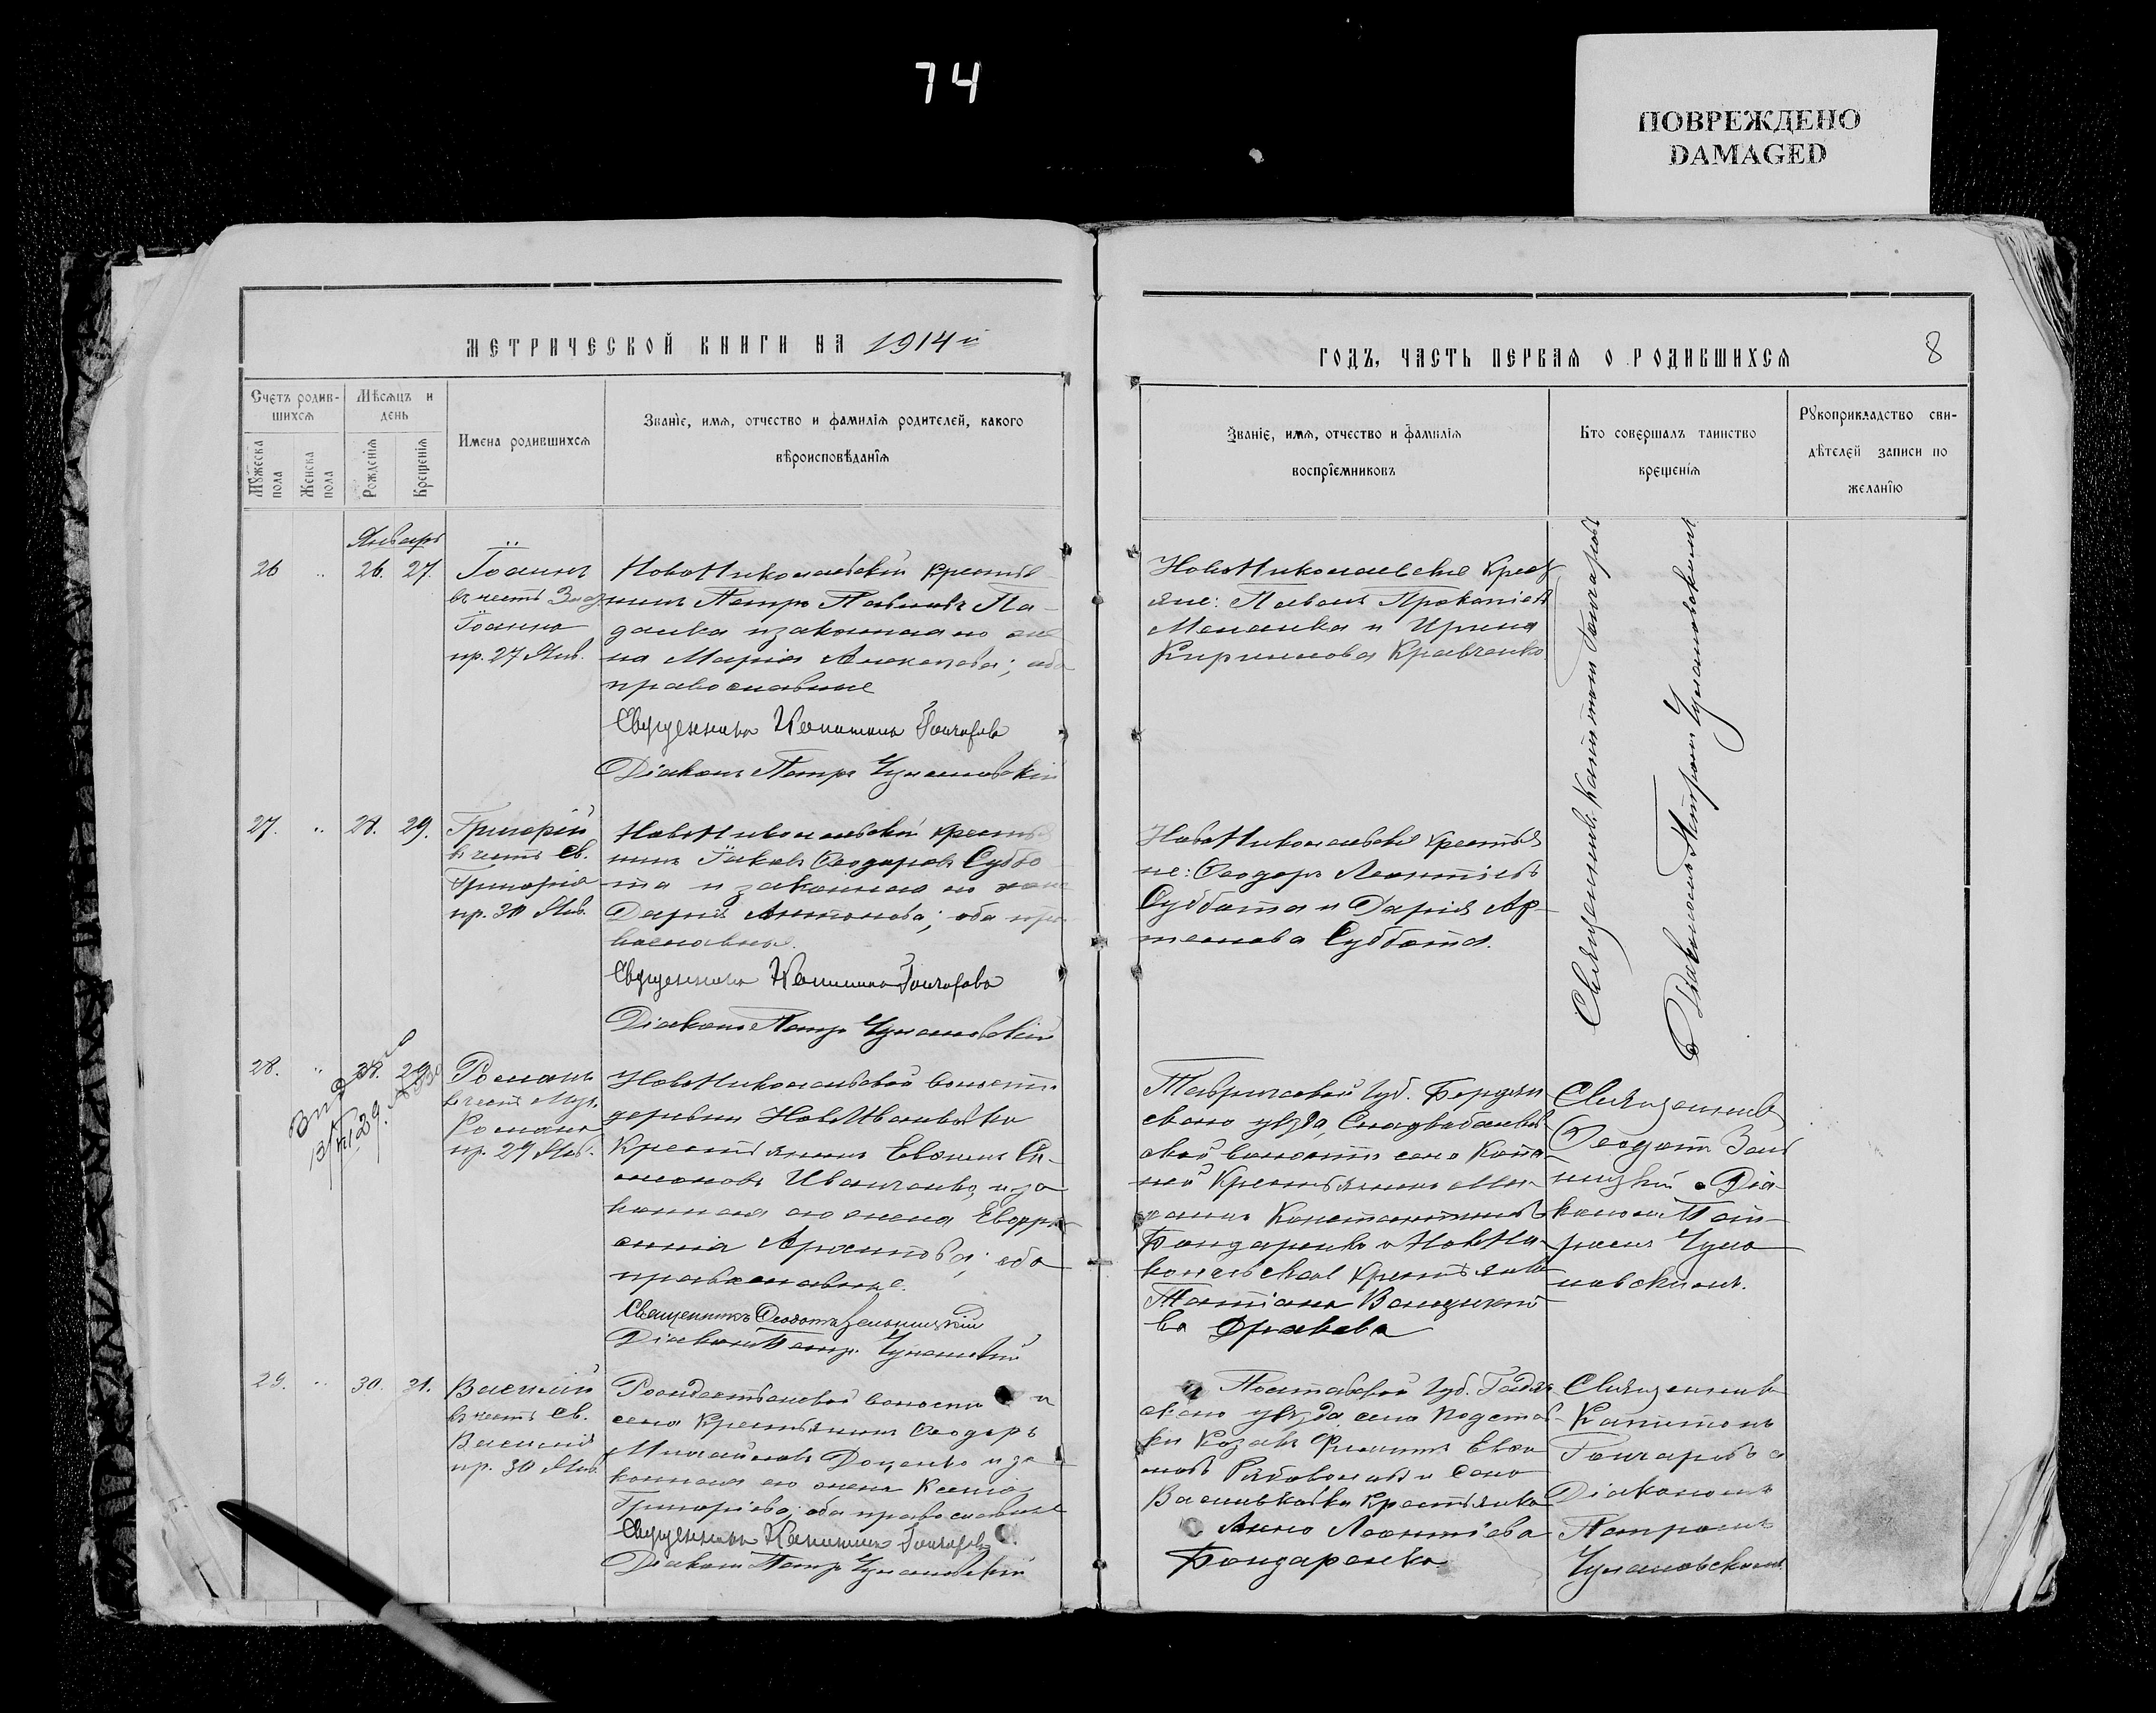 74
ПОВРЕЖДЕНО
DAMAGED
МЕТРИЧЕСКОЙ КНИГИ НА 1914й
ГОДЪ, ЧАСТЬ ПЕРВАЯ О РОДИВШИХСЯ
8
Счетъ родив-
шихся
Мѣсяцъ и
день
Мужеска
пола
Женска
пола
Рожденія
Крещенія
Имена родившихся
Званіе, имя, отчество и фамилія родителей, какого
вѣроисповѣданія
Званіе, имя, отчество и фамилія
воспріемниковъ
Кто совершалъ таинство
крещенія
Рукоприкладство сви-
дѣтелей записи по
желанію
Январь
26 " 26. 27.
Іоаннъ
въ честь
Іоанна
пр. 27 Янв.
НовоНиколаевскій крестья-
нинъ Петръ Павловъ
и законная его же-
на Марія Алексѣева; оба
православные
Священникъ Капитонъ Гончаровъ
Діаконъ Петръ Чумановскій
НовоНиколаевскіе крест
яне: Павелъ Прокопіевъ
и Ирина
Кириллова Кравченко.
Священникъ Капитонъ Гончаровъ
съ Діакономъ Петромъ Чумановскимъ
27. " 28. 29.
Григорій
въ честь св.
Григорія
пр. 30 Янв.
НовоНиколаевскій крестья
нинъ Іаковъ Ѳеодоровъ Суббо
та и законная его жена
Дарія Антонова; оба пра
вославные.
Священникъ Капитонъ Гончаровъ
Діаконъ Петръ Чумановскій
НовоНиколаевскіе крестья
не: Ѳеодоръ Леонтіевъ
Суббота и Дарія Ар-
темова Суббота.
28. " 28. 29.
Романъ
въ честь Муч.
Романа
пр. 29 Янв.
НовоНиколаевской волости
деревни НовоИвановки
крестьянинъ Евѳимъ Си-
меоновъ Иванченко и за
конная его жена Евфро
синія Архипова; оба
православные.
Священникъ Ѳеодотъ
Діаконъ Петръ Чумановскій
Таврической губ. Бердян
скаго уѣзда,
ской волости села
крестьянинъ
Константиновъ
Бондаренко и НовоНи-
колаевская крестьянка
Татіана
ва
Священникъ
Ѳеодотъ
съ Діа-
кономъ Пет-
ромъ Чума
новскимъ.
29. " 30. 31.
Василій
въ честь св.
Василія
пр. 30 Янв.
Рождественской волости и
села крестьянинъ Ѳеодоръ
Михайловъ Доценко и за
конная его жена Ксенія
Григоріева; оба православные
Священникъ Капитонъ Гончаровъ
Діаконъ Петръ Чумановскій
Полтавской губ. Гадяч
скаго уѣзда села Подстав
ки козакъ Филиппъ Евѳи
мовъ и села
Васильевки крестьянка
Анна Леонтіева
Бондаренко
Священникъ
Капитонъ
Гончаровъ съ
Діакономъ
Петромъ
Чумановскимъ.